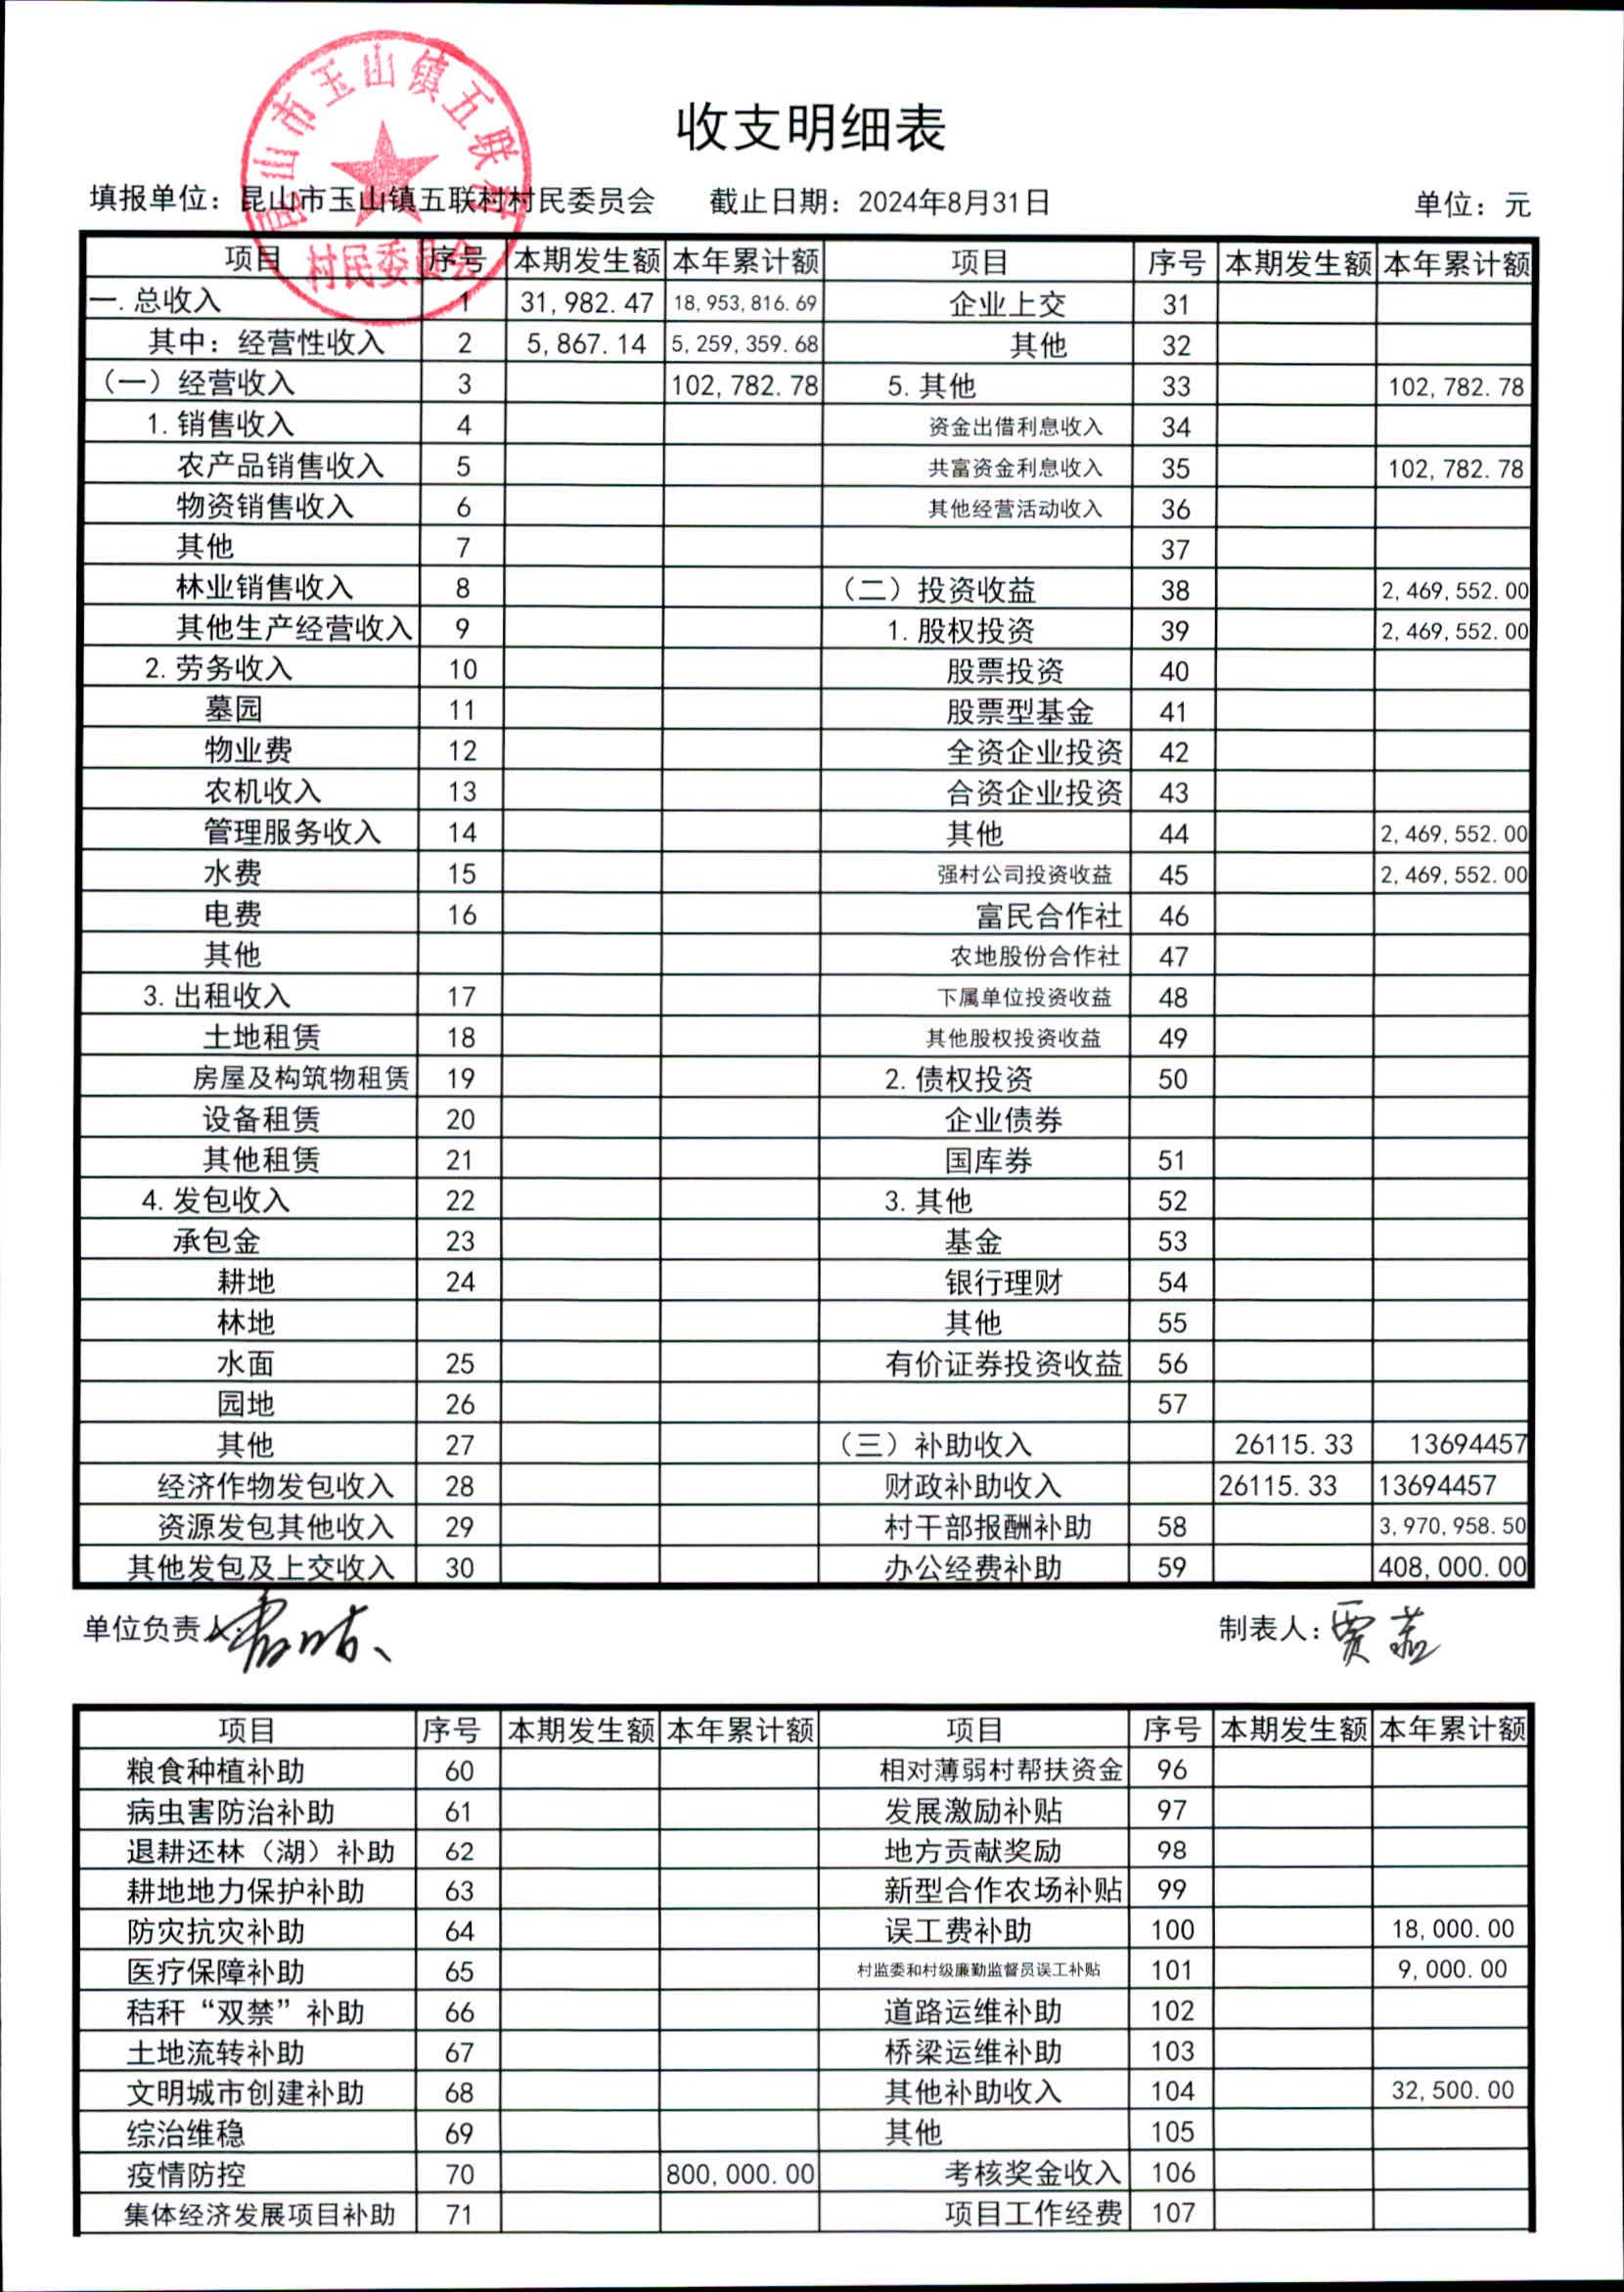 昆山市玉山镇五联村
村民委员会
收支明细表
填报单位：昆山市玉山镇五联村村民委员会 截止日期：2024年8月31日 单位：元
项目 序号 本期发生额 本年累计额 项目 序号 本期发生额 本年累计额
一.总收入 1 31,982.47 18,953,816.69 企业上交 31
其中：经营性收入 2 5,867.14 5,259,359.68 其他 32
（一）经营收入 3 102,782.78 5.其他 33 102,782.78
1.销售收入 4 资金出借利息收入 34
农产品销售收入 5 共富资金利息收入 35 102,782.78
物资销售收入 6 其他经营活动收入 36
其他 7 37
林业销售收入 8 （二）投资收益 38 2,469,552.00
其他生产经营收入 9 1.股权投资 39 2,469,552.00
2.劳务收入 10 股票投资 40
墓园 11 股票型基金 41
物业费 12 全资企业投资 42
农机收入 13 合资企业投资 43
管理服务收入 14 其他 44 2,469,552.00
水费 15 强村公司投资收益 45 2,469,552.00
电费 16 富民合作社 46
其他 农地股份合作社 47
3.出租收入 17 下属单位投资收益 48
土地租赁 18 其他股权投资收益 49
房屋及构筑物租赁 19 2.债权投资 50
设备租赁 20 企业债券
其他租赁 21 国库券 51
4.发包收入 22 3.其他 52
承包金 23 基金 53
耕地 24 银行理财 54
林地 其他 55
水面 25 有价证券投资收益 56
园地 26 57
其他 27 （三）补助收入 26115.33 13694457
经济作物发包收入 28 财政补助收入 26115.33 13694457
资源发包其他收入 29 村干部报酬补助 58 3,970,958.50
其他发包及上交收入 30 办公经费补助 59 408,000.00
单位负责人： 制表人：贾
项目 序号 本期发生额 本年累计额 项目 序号 本期发生额 本年累计额
粮食种植补助 60 相对薄弱村帮扶资金 96
病虫害防治补助 61 发展激励补贴 97
退耕还林（湖）补助 62 地方贡献奖励 98
耕地地力保护补助 63 新型合作农场补贴 99
防灾抗灾补助 64 误工费补助 100 18,000.00
医疗保障补助 65 村监委和村级廉勤监督员误工补贴 101 9,000.00
秸秆“双禁”补助 66 道路运维补助 102
土地流转补助 67 桥梁运维补助 103
文明城市创建补助 68 其他补助收入 104 32,500.00
综治维稳 69 其他 105
疫情防控 70 800,000.00 考核奖金收入 106
集体经济发展项目补助 71 项目工作经费 107